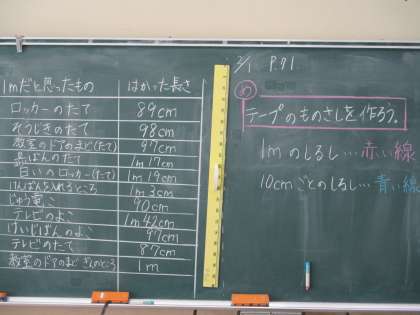 1mだと思ったもの はかった長さ
ロッカーのたて 89cm
そうじきのたて 98cm
教室のドアのまど(たて) 97cm
黒ばんのたて 1m17cm
白いロッカー(たて) 1m19cm
けんばんを入れるところ 1m3cm
じゅう電 90cm
テレビのよこ 1m42cm
けいじばんのよこ 97cm
テレビのたて 87cm
教室のドアのまど さんのところ 1m
2/1 P.71
め
テープのものさしを作ろう。
1mのしるし…赤い線
10cmごとのしるし…青い線